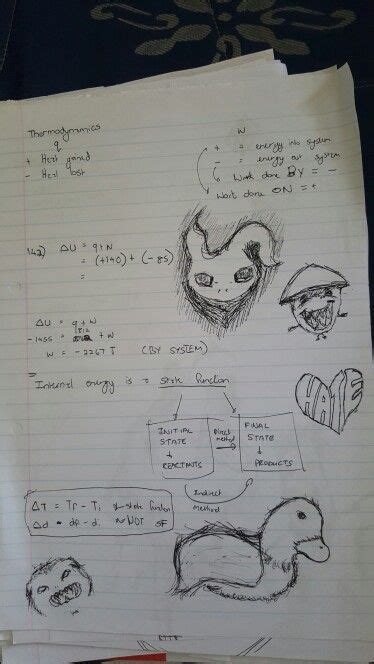 Thermodynamics
q
+ Heat gained
- Heat lost
W
+ = energy into system
- = energy out system
Work done BY = -
Work done ON = +
ΔU = q+W
= (+140) + (-85)
=
ΔU = q+W
-1455 = 812 + W
W = -2267 J (BY SYSTEM)
Internal energy is a state function
INITIAL STATE
↓
REACTANTS
Direct method
FINAL STATE
↓
PRODUCTS
Indirect
method
HATE
ΔT = Tf - Ti state function
Δd = df - di NOT SF